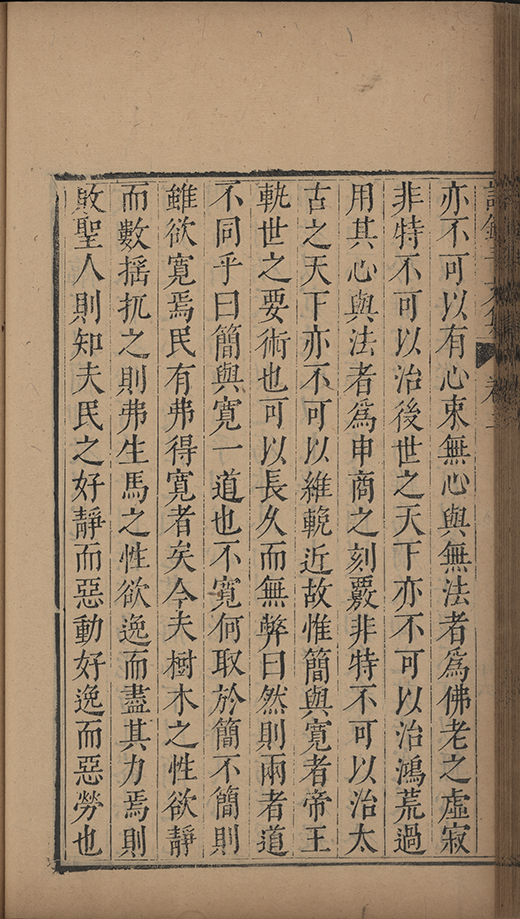 亦不可以有心束無心與無法者爲佛老之虛寂
非特不可以治後世之天下亦不可以治鴻荒過
用其心與法者爲申商之刻覈非特不可以治太
古之天下亦不可以維輓近故惟簡與寬者帝王
軌世之要術也可以長久而無弊曰然則兩者道
不同乎曰簡與寬一道也不寬何取於簡不簡則
雖欲寬焉民有弗得寬者矣今夫樹木之性欲靜
而數搖扤之則弗生馬之性欲逸而盡其力焉則
敗聖人則知夫民之好靜而惡動好逸而惡勞也